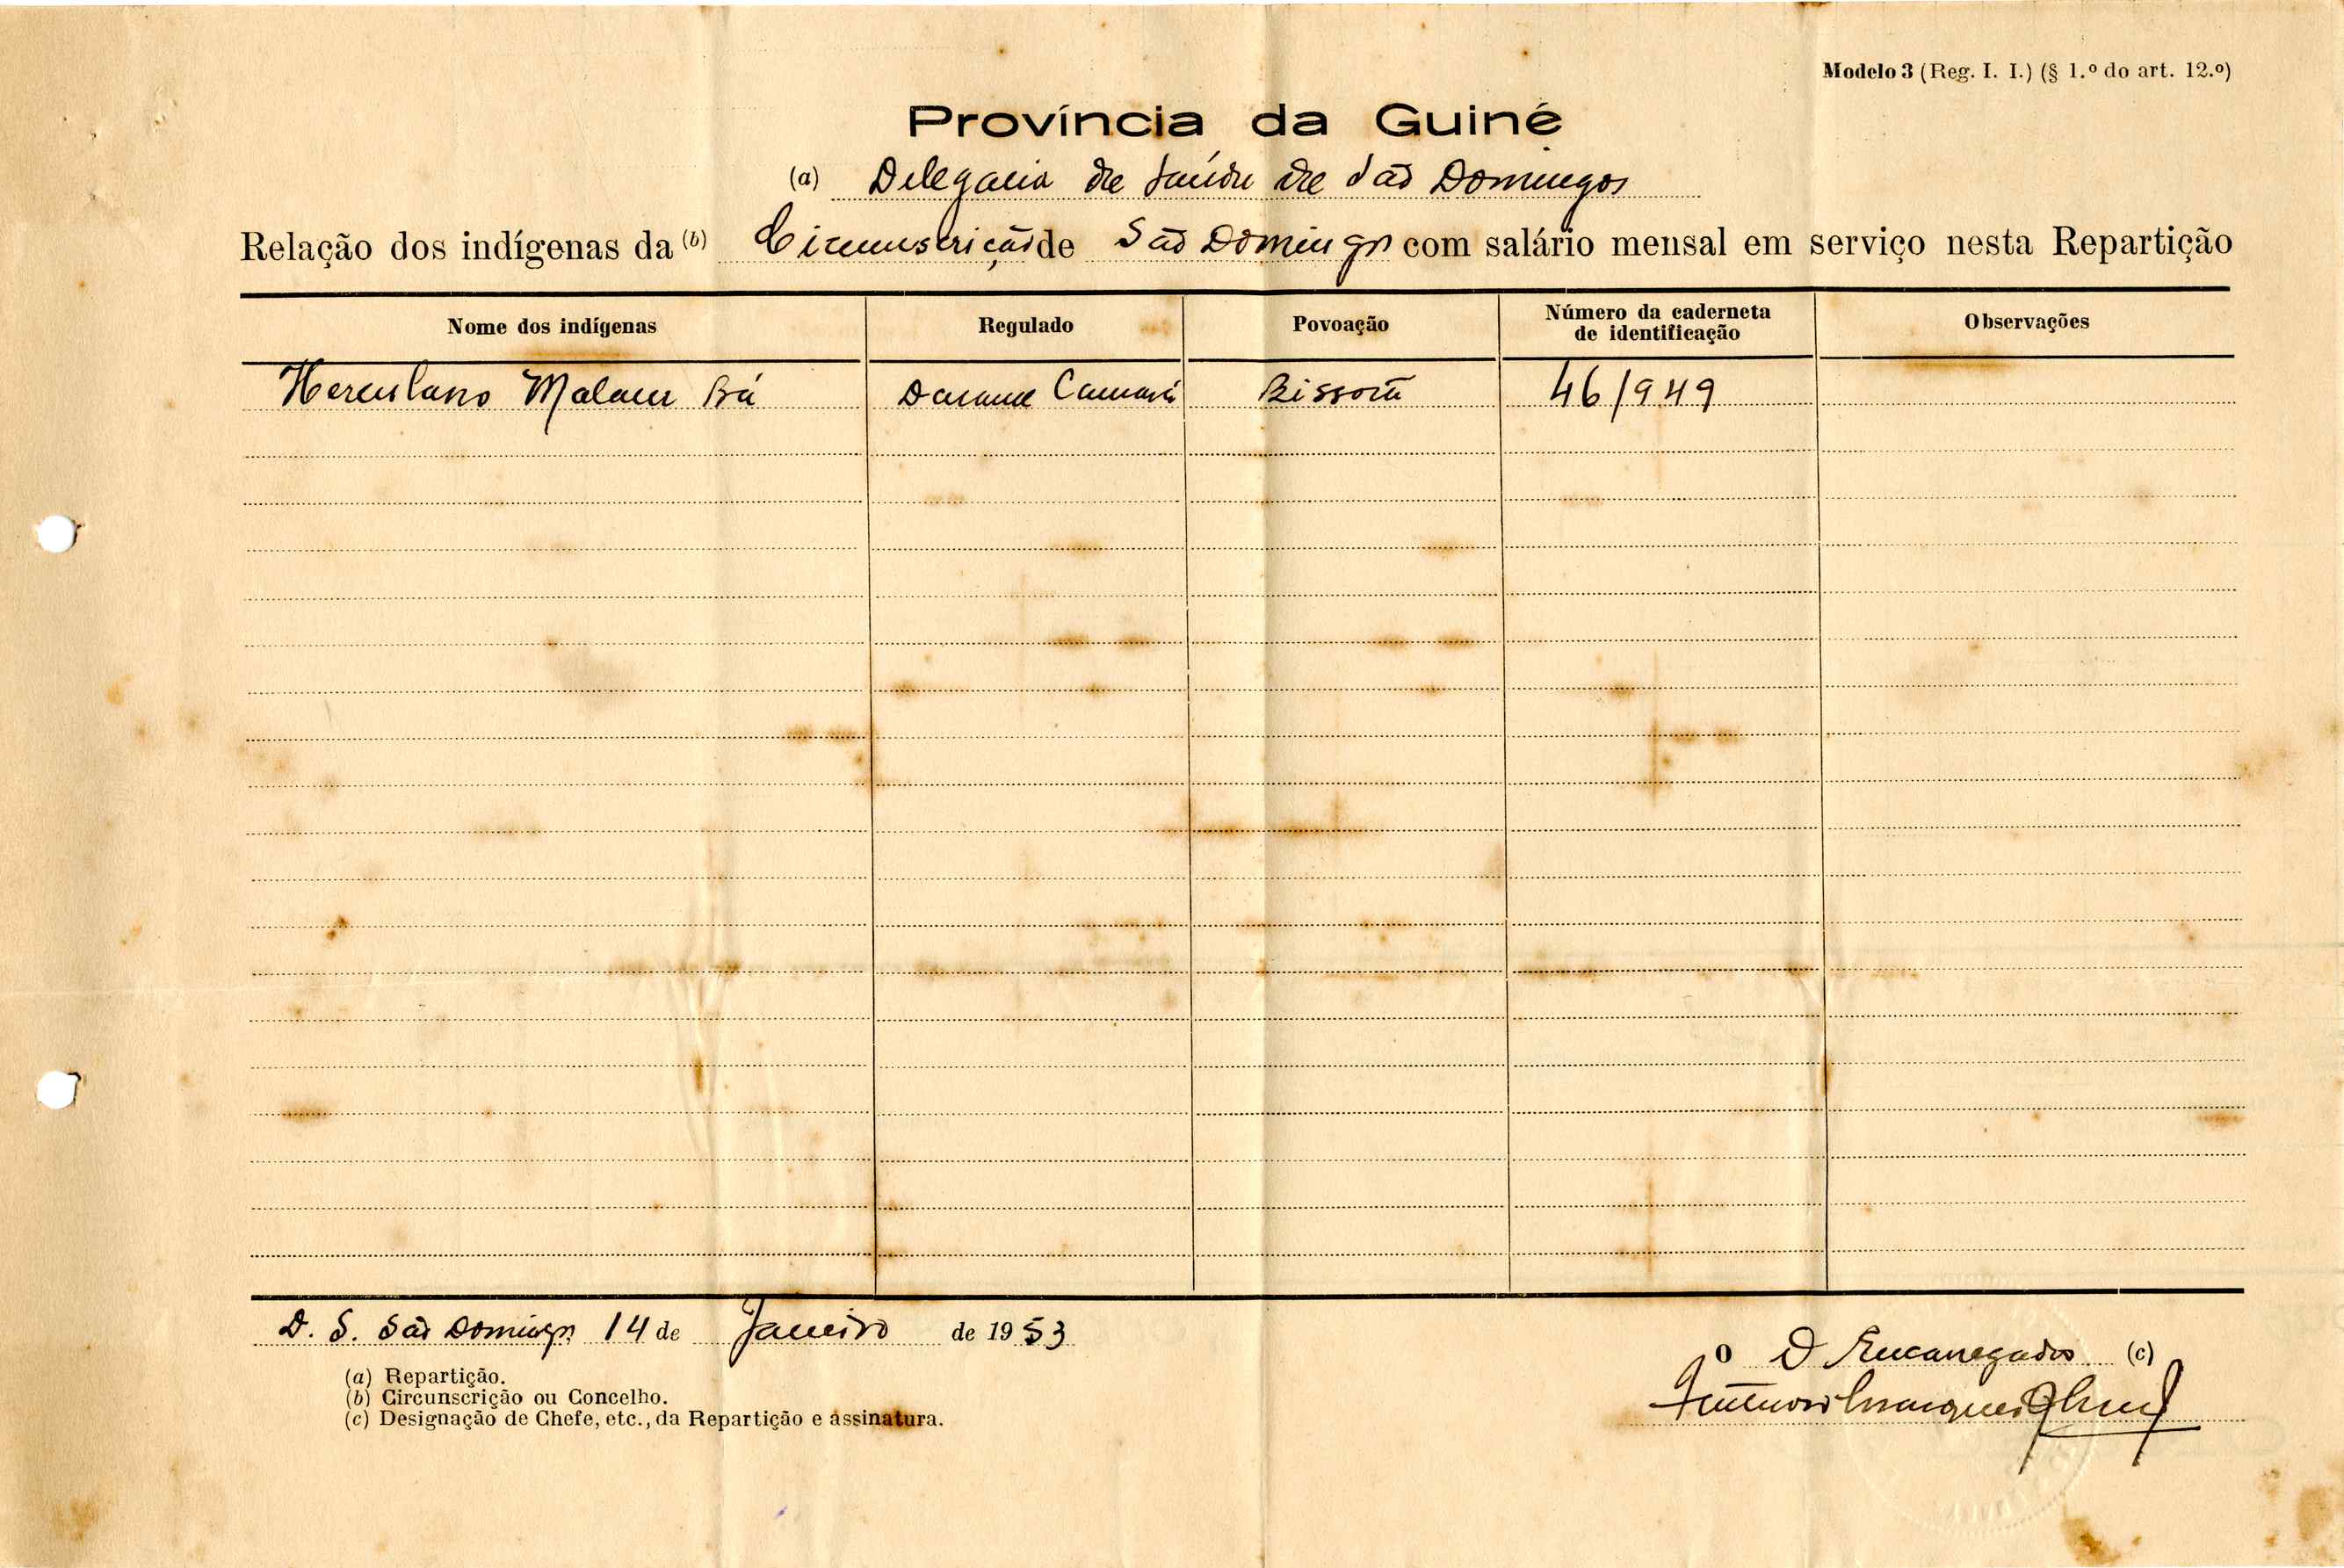 Modelo 3 (Reg. I. I.) (§ 1.º do art. 12.º)
Província da Guiné
(a) Delegacia de Saúde de São Domingos
Relação dos indígenas da (b) Circunscrição de São Domingos com salário mensal em serviço nesta Repartição
Nome dos indígenas Regulado Povoação Número da caderneta de identificação Observações
Herculano Malam Bá Camará Bissorã 46/949
D. S. São Domingos 14 de Janeiro de 1953
O Encarregado (c)
(a) Repartição.
(b) Circunscrição ou Concelho.
(c) Designação de Chefe, etc., da Repartição e assinatura.